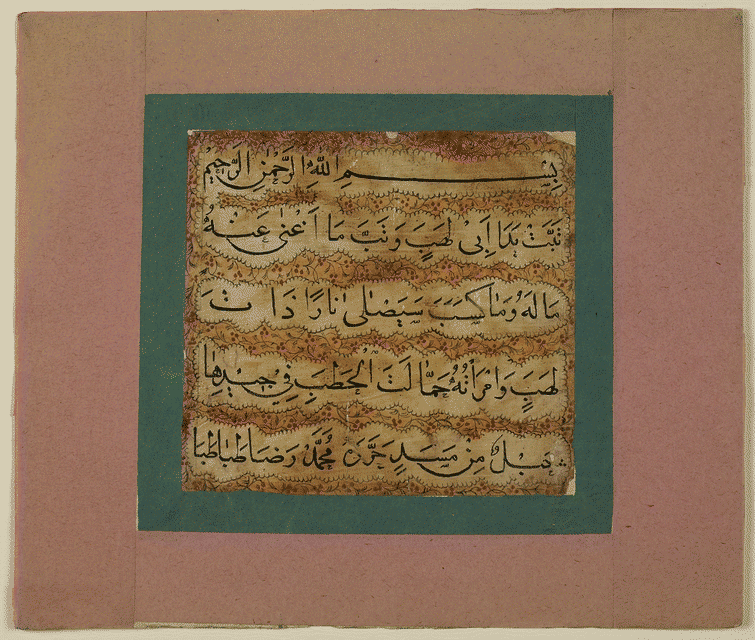 بِسْمِ اللّٰهِ الرَّحْمٰنِ الرَّحِيْمِ
تَبَّتْ يَدَا اَبِى لَهَبٍ وَتَبَّ مَا اَغْنٰى عَنْهُ
مَالَهُ وَمَا كَسَبَ سَيَصْلٰى نَارًا ذَاتَ
لَهَبٍ وَامْرَأَتُهُ حَمَّالَتَ الْحَطَبِ فِي جِيْدِهَا
حَبْلٌ مِنْ مَسَدٍ حَرَّرَهُ مُحَمَّدْ رَضَا طَبَاطَبَا